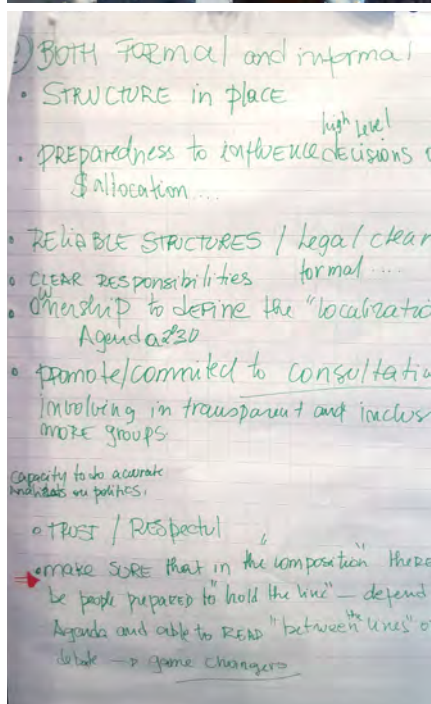 BOTH FORMal and informal
• STRUCTURE in place
high level
• PREparedness to influence decisions
$ allocation ....
• RELIABLE STRUCTURES / legal / clear
• CLEAR RESponsibilities formal ....
• Ownership to DEFINE the "localizatio
Agenda 230
• promote/commited to consultatio
involving in transparent and inclus
MORE groups.
capacity to do acurate
on politics.
• TRUST / Respectul
• make SURE that in the "composition" there
be people prepared to "hold the line" — defend
Agenda and able to READ "between the lines" o
debate → game changers